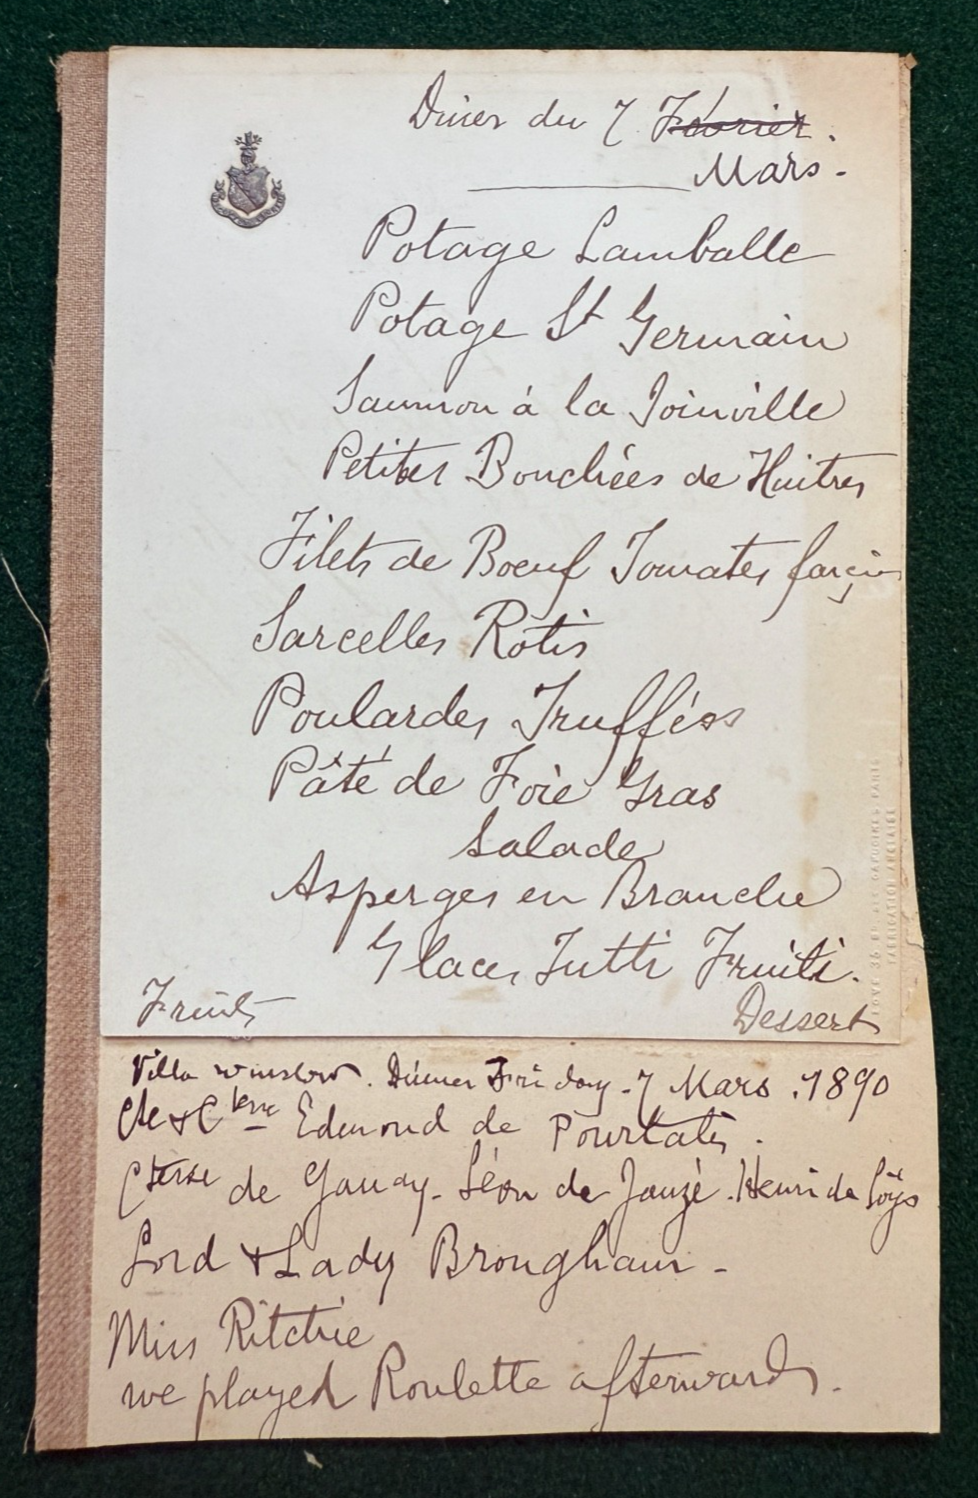 Diner du 7 Février.
Mars.
Potage Lamballe
Potage St Germain
Saumon à la Joinville
Petites Bouchées de Huitres
Filets de Boeuf Tomates farcies
Sarcelles Rotis
Poulardes Trufféss
Pâté de Foie Gras
Salade
Asperges en Branche
Glaces Tutti Fruiti.
Fruits Dessert
Villa Winslow. Dinner Friday. 7 Mars. 1890
Cte & Ctesse Edmond de Pourtalès.
Ctesse de Ganay. Léon de Janzé. Henri de
Lord & Lady Brougham -
Miss Ritchie
we played Roulette afterwards.
CAPUCINES PARIS